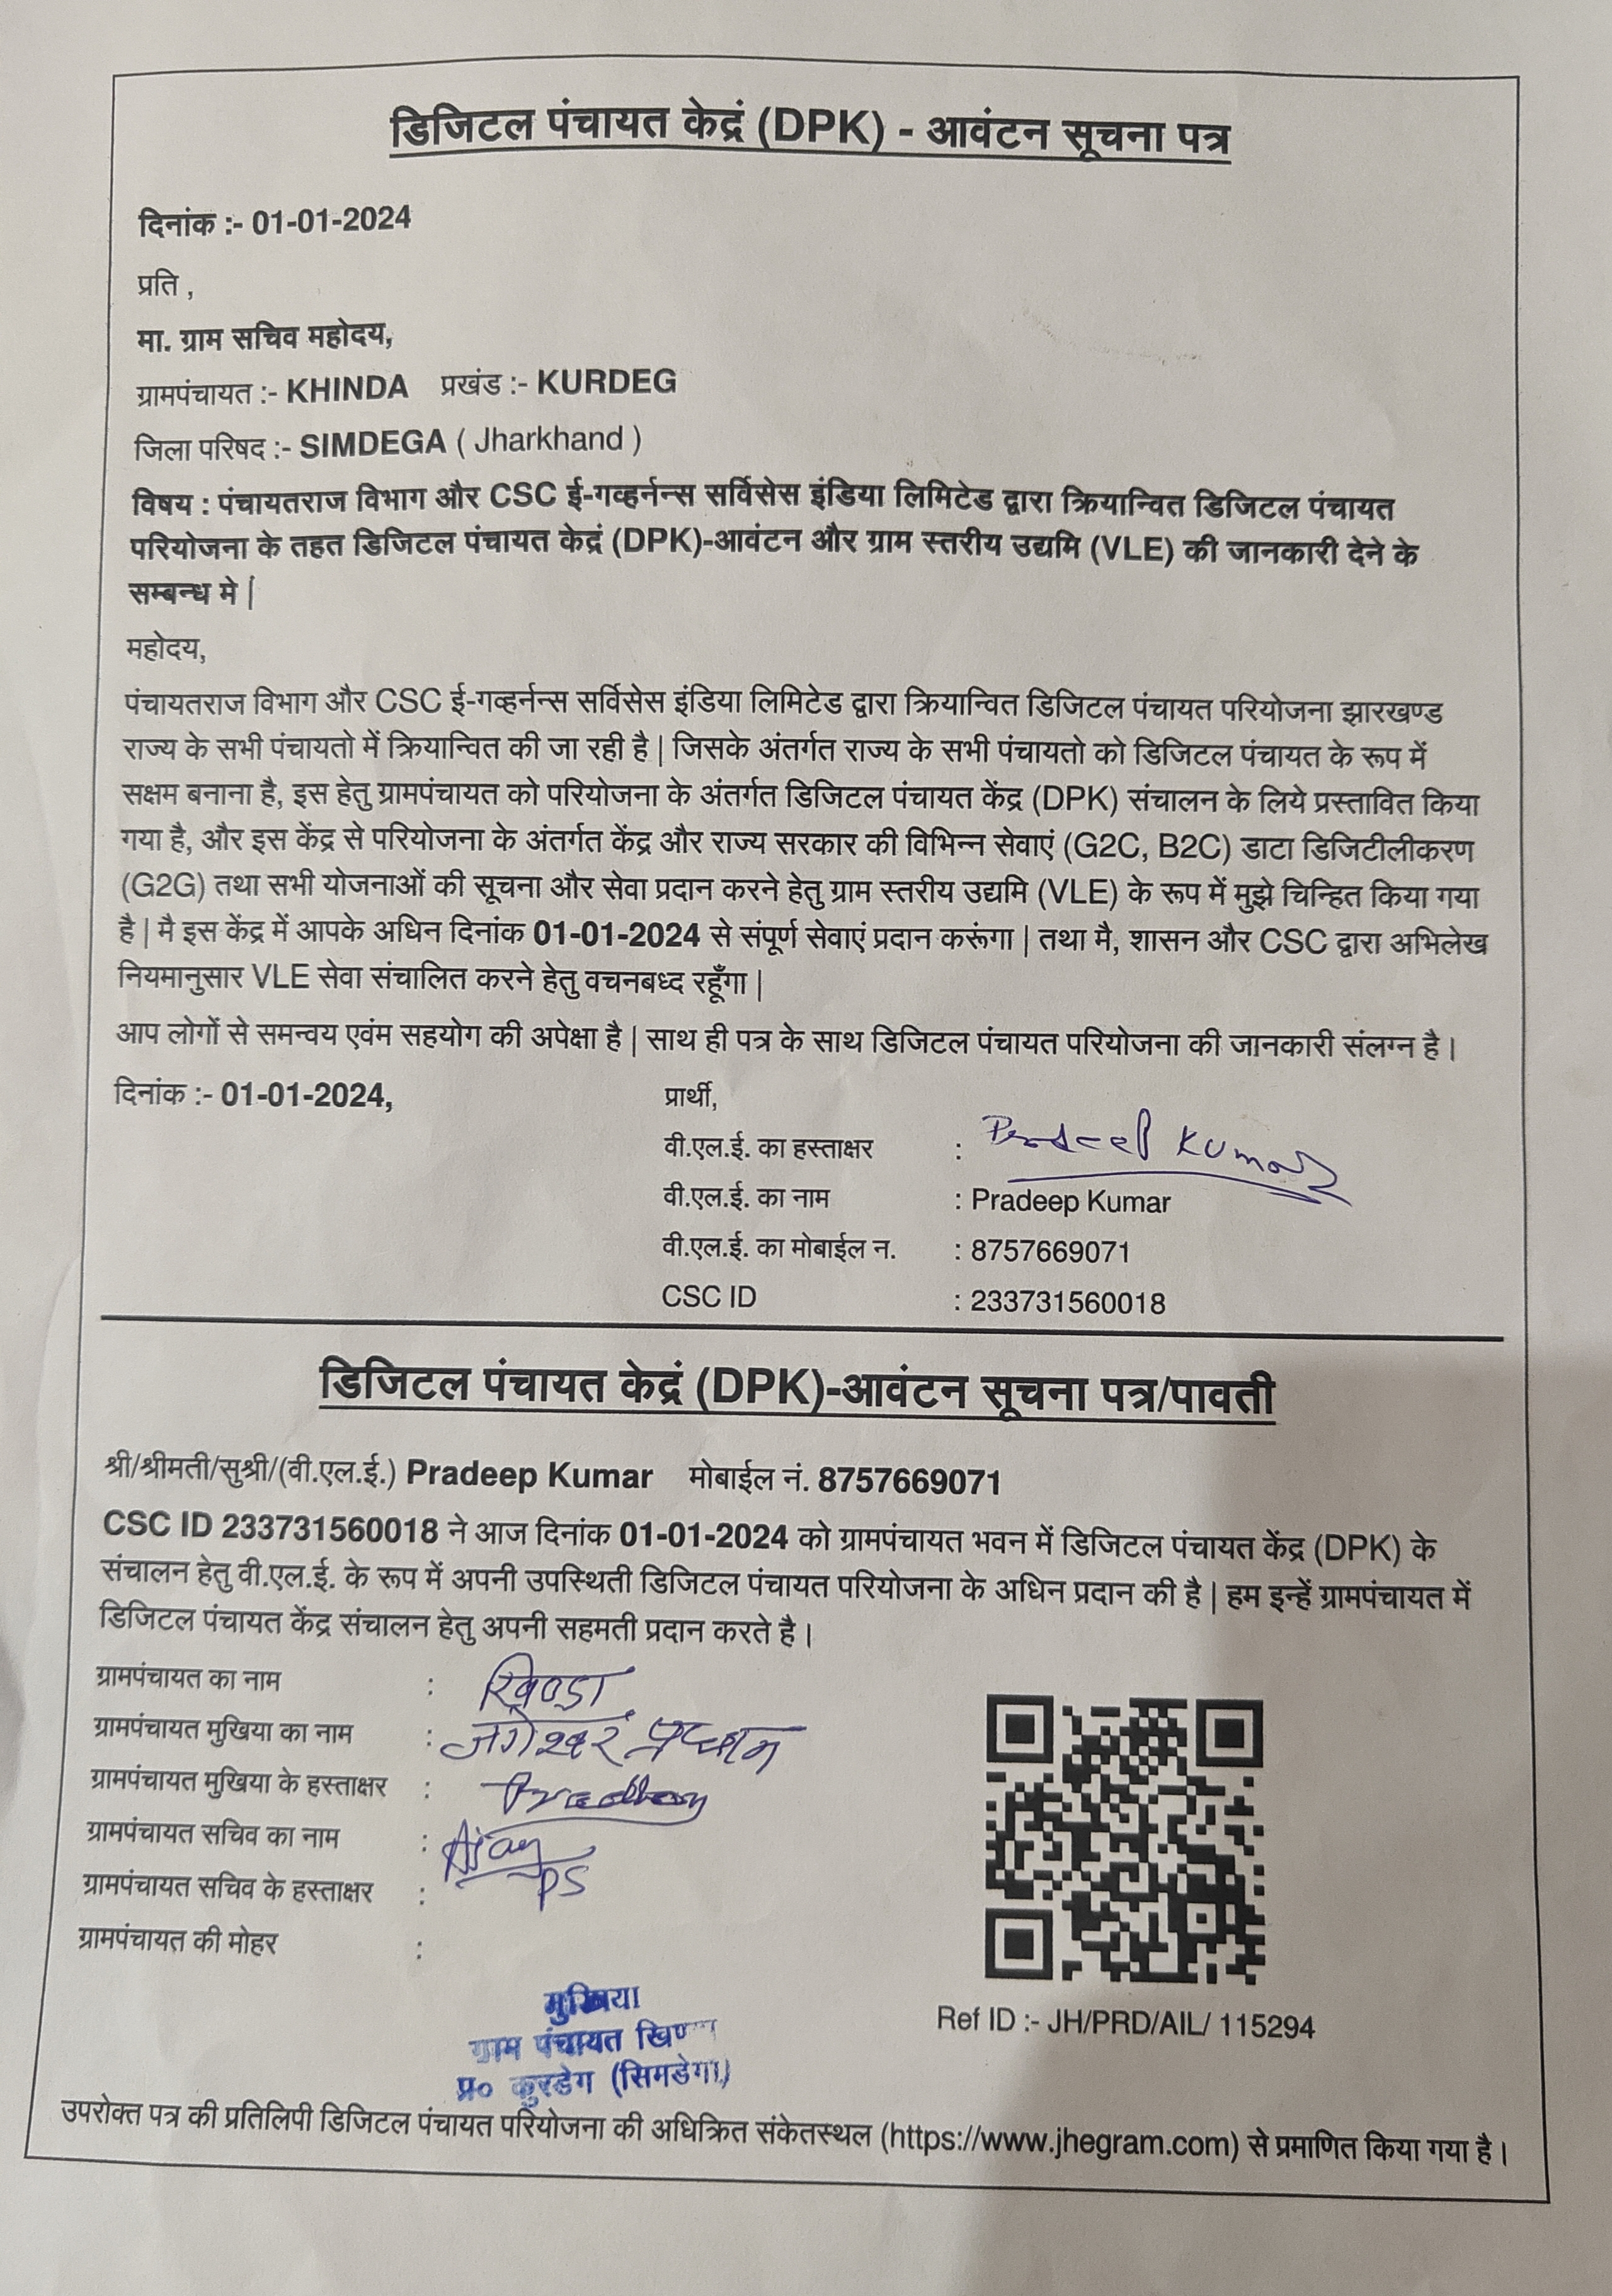 डिजिटल पंचायत केद्रं (DPK) - आवंटन सूचना पत्र
दिनांक :- 01-01-2024
प्रति ,
मा. ग्राम सचिव महोदय,
ग्रामपंचायत :- KHINDA प्रखंड :- KURDEG
जिला परिषद :- SIMDEGA ( Jharkhand )
विषय : पंचायतराज विभाग और CSC ई-गव्हर्नन्स सर्विसेस इंडिया लिमिटेड द्वारा क्रियान्वित डिजिटल पंचायत
परियोजना के तहत डिजिटल पंचायत केद्रं (DPK)-आवंटन और ग्राम स्तरीय उद्यमि (VLE) की जानकारी देने के
सम्बन्ध मे |
महोदय,
पंचायतराज विभाग और CSC ई-गव्हर्नन्स सर्विसेस इंडिया लिमिटेड द्वारा क्रियान्वित डिजिटल पंचायत परियोजना झारखण्ड
राज्य के सभी पंचायतो में क्रियान्वित की जा रही है | जिसके अंतर्गत राज्य के सभी पंचायतो को डिजिटल पंचायत के रूप में
सक्षम बनाना है, इस हेतु ग्रामपंचायत को परियोजना के अंतर्गत डिजिटल पंचायत केंद्र (DPK) संचालन के लिये प्रस्तावित किया
गया है, और इस केंद्र से परियोजना के अंतर्गत केंद्र और राज्य सरकार की विभिन्न सेवाएं (G2C, B2C) डाटा डिजिटीलीकरण
(G2G) तथा सभी योजनाओं की सूचना और सेवा प्रदान करने हेतु ग्राम स्तरीय उद्यमि (VLE) के रूप में मुझे चिन्हित किया गया
है | मै इस केंद्र में आपके अधिन दिनांक 01-01-2024 से संपूर्ण सेवाएं प्रदान करूंगा | तथा मै, शासन और CSC द्वारा अभिलेख
नियमानुसार VLE सेवा संचालित करने हेतु वचनबध्द रहूँगा |
आप लोगों से समन्वय एवंम सहयोग की अपेक्षा है | साथ ही पत्र के साथ डिजिटल पंचायत परियोजना की जानकारी संलग्न है।
दिनांक :- 01-01-2024, प्रार्थी,
वी.एल.ई. का हस्ताक्षर : Pradeep Kumar
वी.एल.ई. का नाम : Pradeep Kumar
वी.एल.ई. का मोबाईल न. : 8757669071
CSC ID : 233731560018
डिजिटल पंचायत केद्रं (DPK)-आवंटन सूचना पत्र/पावती
श्री/श्रीमती/सुश्री/(वी.एल.ई.) Pradeep Kumar मोबाईल नं. 8757669071
CSC ID 233731560018 ने आज दिनांक 01-01-2024 को ग्रामपंचायत भवन में डिजिटल पंचायत केंद्र (DPK) के
संचालन हेतु वी.एल.ई. के रूप में अपनी उपस्थिती डिजिटल पंचायत परियोजना के अधिन प्रदान की है | हम इन्हें ग्रामपंचायत में
डिजिटल पंचायत केंद्र संचालन हेतु अपनी सहमती प्रदान करते है।
ग्रामपंचायत का नाम : खिण्डा
ग्रामपंचायत मुखिया का नाम : प्रधान
ग्रामपंचायत मुखिया के हस्ताक्षर : Pradhan
ग्रामपंचायत सचिव का नाम : Ajay
ग्रामपंचायत सचिव के हस्ताक्षर : PS
ग्रामपंचायत की मोहर :
मुखिया
ग्राम पंचायत
प्र० कुरडेग (सिमडेगा)
Ref ID :- JH/PRD/AIL/ 115294
उपरोक्त पत्र की प्रतिलिपी डिजिटल पंचायत परियोजना की अधिक्रित संकेतस्थल (https://www.jhegram.com) से प्रमाणित किया गया है।